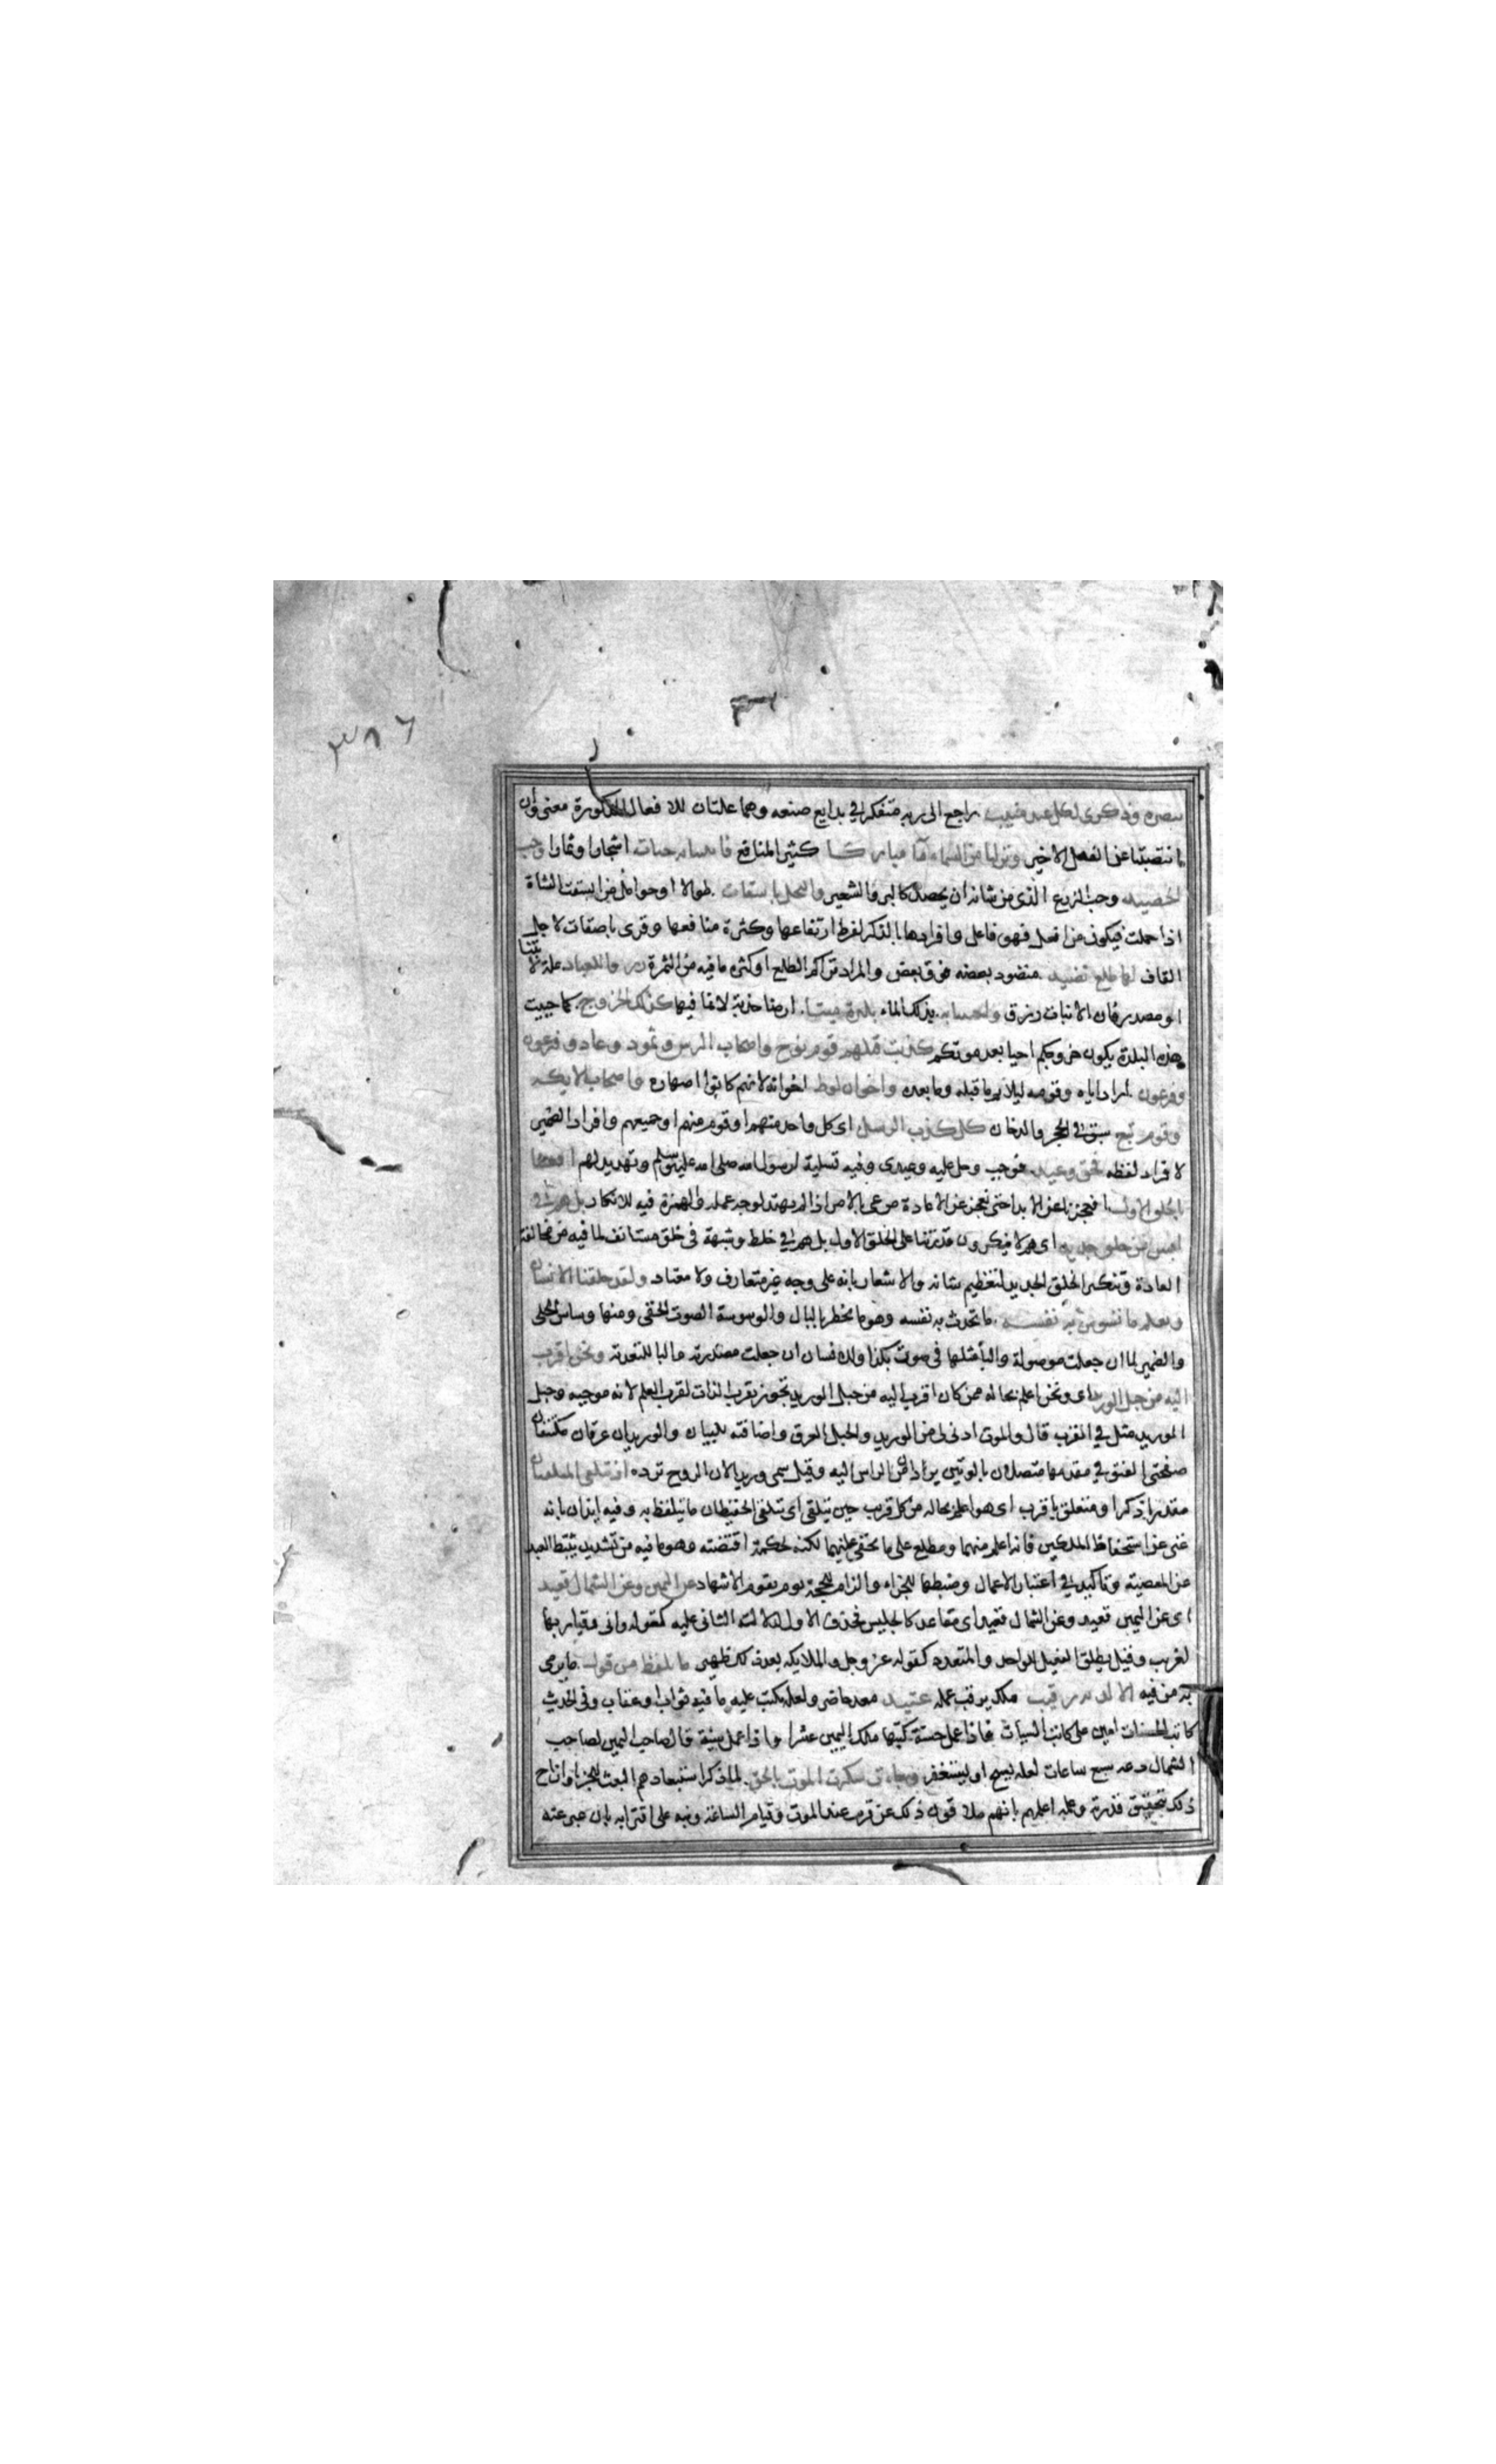 ٣٨٦
تبصرة وذكرى لكل عبد منيب راجع الى ربه متفكر في بدايع صنعه وهما علتان للافعال المذكورة معنى وان
انتصبتا عن الفعل الاخير ونزلنا من السماء ماء مباركا كثير المنافع فانبتنا به جنات اشجارا وثمارا وحب
الحصيد وحب الزرع الذي من شانه ان يحصد كالبر والشعير والنخل باسقات طوالا او حوامل من ابسقت الشاة
اذا حملت فيكون من افعل فهو فاعل وافرادها بالذكر لفرط ارتفاعها وكثرة منافعها وقرى باصقات لاجل
القاف لها طلع نضيد منضود بعضه فوق بعض والمراد تراكم الطلع او كثرة ما فيه من الثمرة رزقا للعباد علة لانبتنا
او مصدر فان الانبات رزق واحيينا به بذلك الماء بلدة ميتا ارضا جدبة لانما فيها كذلك الخروج كما حييت
هذه البلدة يكون خروجكم احيا بعد موتكم كذبت قبلهم قوم نوح واصحاب الرس وثمود وعاد وفرعون
وفرعون اراد اياه وقومه ليلايم ما قبله وما بعده واخوان لوط اخوانه لانهم كانوا اصهاره واصحاب الايكة
وقوم تبع سبق في الحجر والدخان كل كذب الرسل اي كل واحد منهم او قوم منهم او جميعهم وافراد الضمير
لافراد لفظه فحق وعيد فوجب وحل عليه وعيدي وفيه تسلية لرسول الله صلى الله عليه وسلم وتهديد لهم افعيينا
بالخلق الاول افعجزنا عن الابدا حتى نعجز عن الاعادة من عي بالامر اذا لم يهتد لوجه عمله والهمزة فيه للانكار بل هم في
لبس من خلق جديد اي هم لا ينكرون قدرتنا على الخلق الاول بل هم في خلط وشبهة في خلق مستانف لما فيه من مخالفة
العادة وتنكير الخلق الجديد لتعظيم شانه والاشعار بانه على وجه غير متعارف ولا معتاد ولقد خلقنا الانسان
ونعلم ما توسوس به نفسه ما تحدث به نفسه وهو ما يخطر بالبال والوسوسة الصوت الخفي ومنها وساس الحلى
والضمير لما ان جعلت موصولة والبا مثلها في صوت بكذا وللانسان ان جعلت مصدرية والبا للتعدية ونحن اقرب
اليه من حبل الوريد اي ونحن اعلم بحاله ممن كان اقرب اليه من حبل الوريد تجوز بقرب الذات لقرب العلم لانه موجبه وحبل
الوريد مثل في القرب قال والموت ادنى لي من الوريد والحبل العرق واضافته للبيان والوريدان عرقان مكتنفان
صفحتي العنق في مقدمها متصلان بالوتين يردان من الراس اليه وقيل سمي وريدا لان الروح ترده اذ يتلقى المتلقيان
مقدر باذكر او متعلق باقرب اي هو اعلم بحاله من كل قريب حين يتلقى اي يتلقى الحفيظان ما يتلفظ به وفيه ايذان بانه
غني عن استحفاظ الملكين فانه اعلم منهما ومطلع على ما يخفى عليهما لكنه لحكمة اقتضته وهو ما فيه من تشديد يثبط العبد
عن المعصية وتاكيد في اعتبار الاعمال وضبطها للجزاء والزام للحجة يوم يقوم الاشهاد عن اليمين وعن الشمال قعيد
اي عن اليمين قعيد وعن الشمال قعيد اي مقاعد كالجليس فحذف الاول لدلالة الثاني عليه كقوله واني وقيار بها
لغريب وقيل يطلق الفعيل للواحد والمتعدد كقوله عز وجل والملايكة بعد ذلك ظهير ما يلفظ من قول ما يرمي
به من فيه الا لديه رقيب ملك يرقب عمله عتيد معد حاضر ولعله يكتب عليه ما فيه ثواب او عقاب وفي الحديث
كاتب الحسنات امين على كاتب السيات فاذا عمل حسنة كتبها ملك اليمين عشرا واذا عمل سيئة قال صاحب اليمين لصاحب
الشمال دعه سبع ساعات لعله يسبح او يستغفر وجاءت سكرت الموت بالحق لما ذكر استبعادهم البعث للجزا وازاح
ذلك بتحقيق قدرته وعلمه اعلمهم بانهم يلاقون ذلك عن قرب عند الموت وقيام الساعة ونبه على اقترابه بان عبر عنه